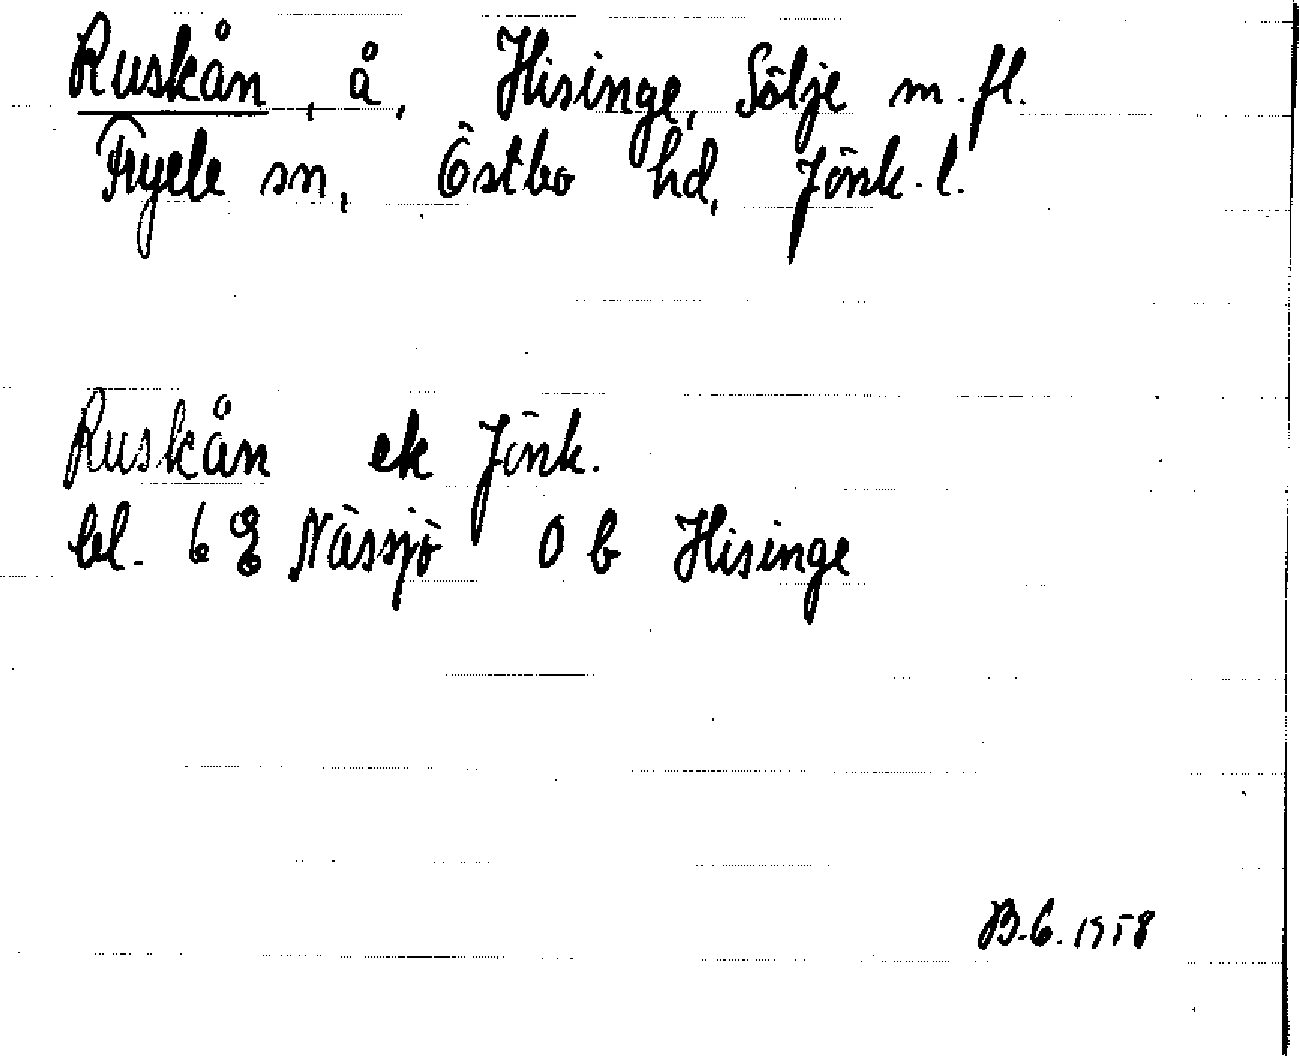 Ruskån, å, Hisinge, Sölje m.fl.
Fryele sn, Östbo hd, Jönk. l.
Ruskån ek Jönk.
bl. 6 E Nässjö 0 b Hisinge
B.G. 1958